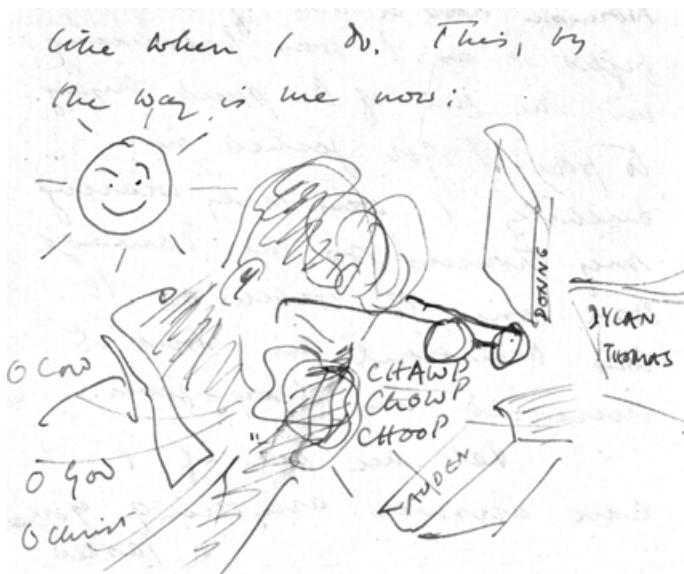 like when I do. This, by
the way, is me now:
DONNE
DYLAN
THOMAS
CHAWP
CHOWP
CHOOP
O God
O God
O Christ
AUDEN